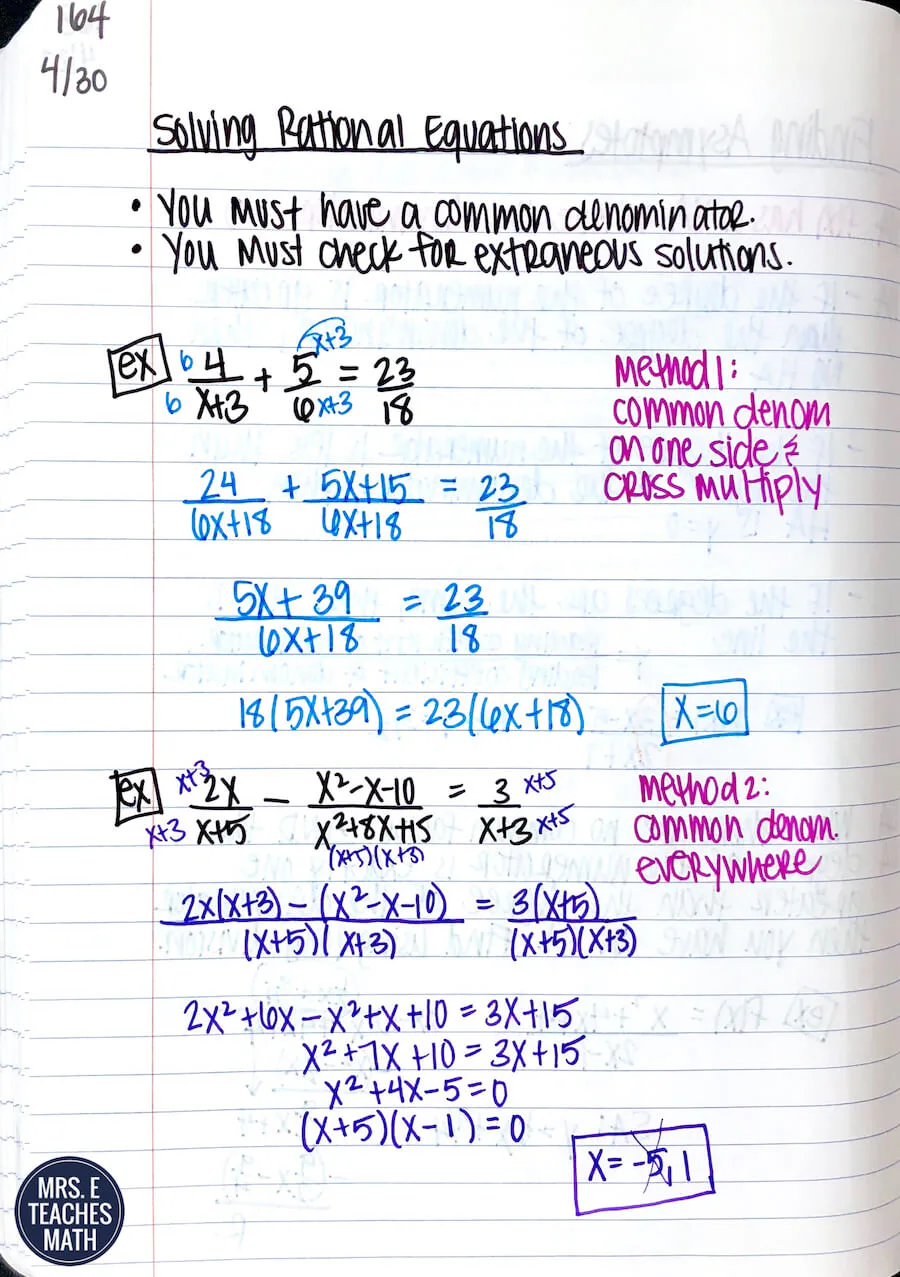 164
4/30
Solving Rational Equations
• You must have a common denominator.
• You must check for extraneous solutions.
ex 6 4/x+3 6 + 5/6 x+3 x+3 = 23/18
Method 1:
common denom
on one side &
cross multiply
24/6x+18 + 5x+15/6x+18 = 23/18
5x+39/6x+18 = 23/18
18(5x+39) = 23(6x+18)
x=6
ex x+3 2x/x+5 x+3 − x²-x-10/x²+8x+15 = 3/x+3 x+5 x+5
(x+5)(x+3)
Method 2:
common denom.
everywhere
2x(x+3) − (x²-x-10)/(x+5)(x+3) = 3(x+5)/(x+5)(x+3)
2x²+6x−x²+x+10 = 3x+15
x²+7x+10 = 3x+15
x²+4x-5=0
(x+5)(x-1)=0
x= -5, 1
MRS. E
TEACHES
MATH